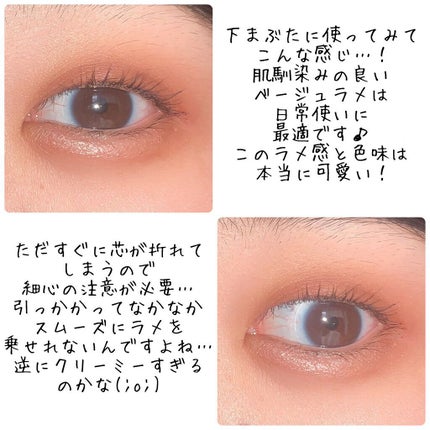 下まぶたに使ってみて
こんな感じ…!
肌馴染みの良い
ベージュラメは
日常使いに
最適です♪
このラメ感と色味は
本当に可愛い!
ただすぐに芯が折れて
しまうので
細心の注意が必要…
引っかかってなかなか
スムーズにラメを
乗せれないんですよね…
逆にクリーミーすぎる
のかな(;o;)